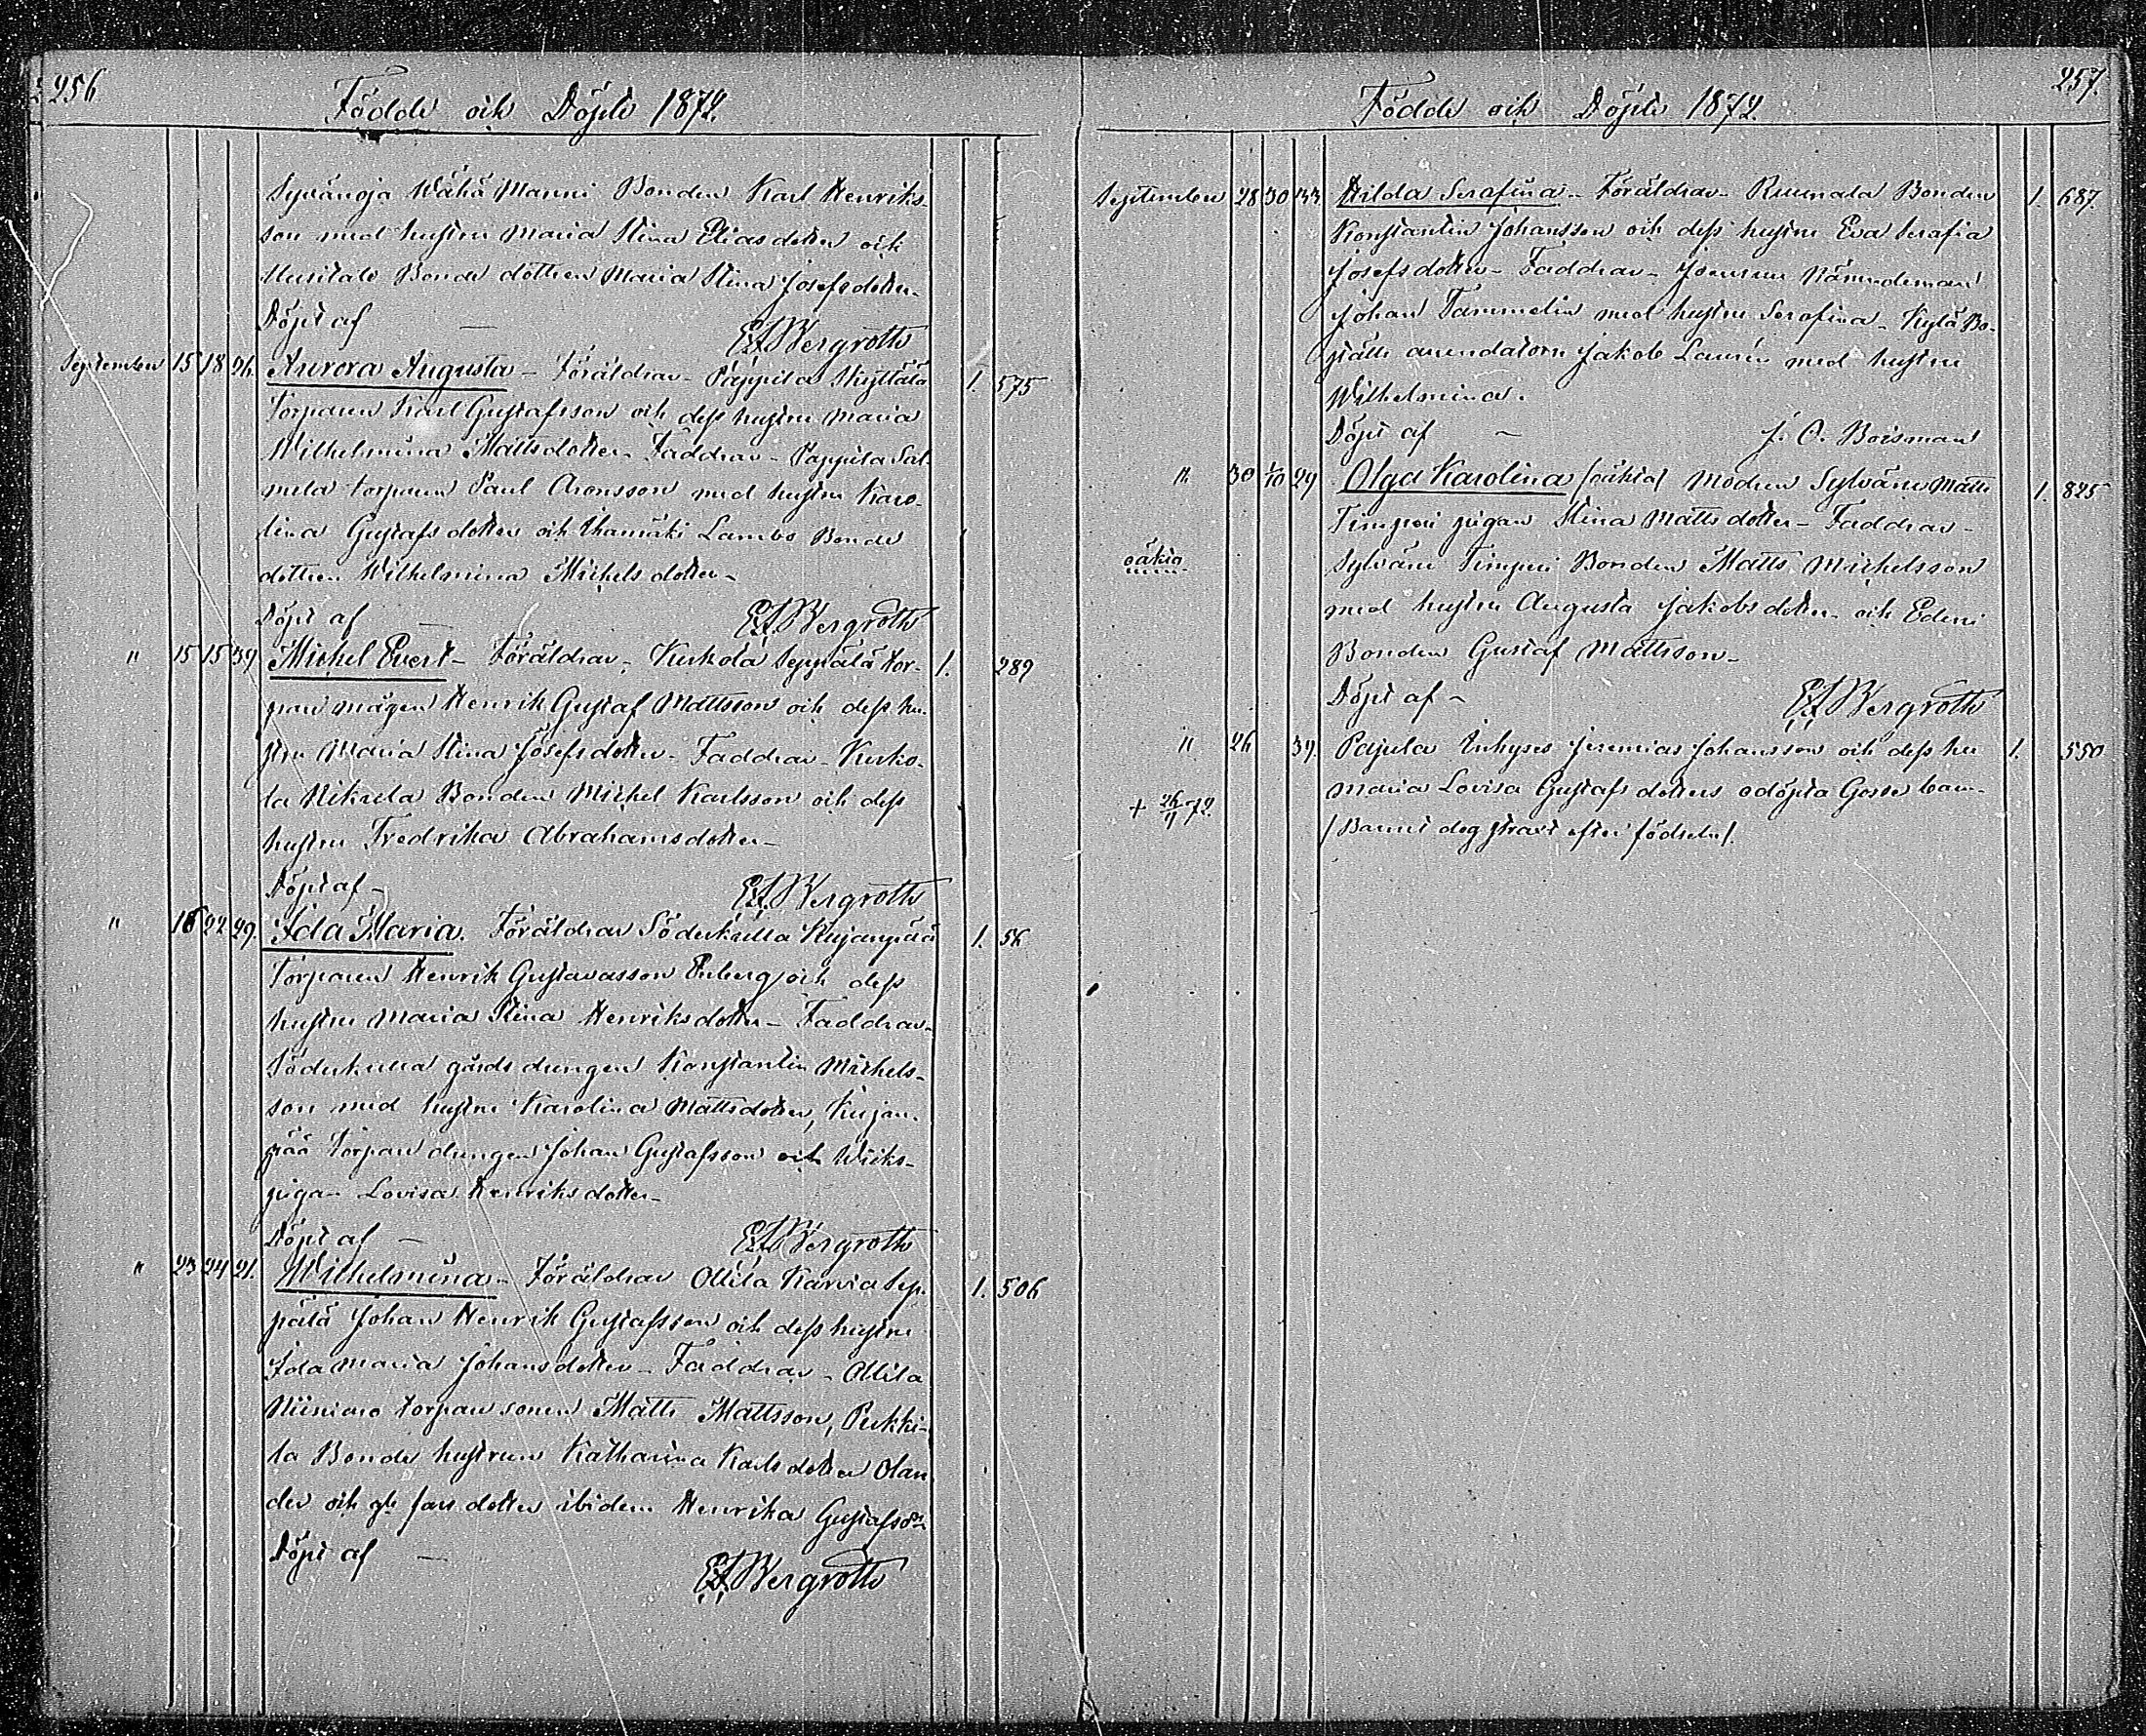 256
Födde och Döpte 1872.
Sywänoja Wähä Manni Bonden Karl Henriks-
son med hustru Maria Stina Eliasdotter och
Bonde dottren Maria Stina Josefsdotter.
Döpt af — Bergroth
September 15 18 26. Aurora Augusta – Föräldrar – Pappila Skyttälä 1. 575
Torparen Karl Gustafsson och dess hustru Maria
Wilhelmina Mattsdotter – Faddrar – Pappila Sal-
mela torparen Paul Aronsson med hustru Karo-
lina Gustafsdotter och Lambo Bonde
dottren Wilhelmina Michelsdotter –
Döpt af — Bergroth
" 15 15 39 Michel Evert – Föräldrar – Kurkola Seppälä tor- 1. 289
pare mågen Henrik Gustaf Mattsson och dess hu-
stru Maria Stina Josefsdotter – Faddrar – Kurko-
la Nikula Bonden Michel Karlsson och dess
hustru Fredrika Abrahamsdotter –
Döpt af – Bergroth
" 16 22 29. Ida Maria. Föräldrar Söderkulla Kujanpää 1. 56
Torparen Henrik Gustavasson Enberg och dess
hustru Maria Stina Henriksdotter – Faddrar –
Söderkulla gårds drengen Konstantin Michels-
son med hustru Karolina Mattsdotter, Kujan-
pää torpare drengen Johan Gustafsson och Wiiks-
pigan Lovisa Henriksdotter –
Döpt af — Bergroth
" 23 24 21. Wilhelmina – Föräldrar Ollila Karvia Sep- 1. 506
pälä Johan Henrik Gustafsson och dess hustru
Ida Maria Johansdotter – Faddrar – Ollila
torpare sonen Matts Mattsson, Pukki-
la Bonde hustrun Katharina Karlsdotter Olan
der och dotter ibidem Henrika Gustafsdr
Döpt af — Bergroth
257.
Födde och Döpte 1872.
September 28 30 33. Hilda Serafina – Föräldrar – Ruunala Bonden 1. 687.
Konstantin Johansson och dess hustru Eva Serafia
Josefsdotter – Faddrar – Nämndeman
Johan Tammelin med hustru Serafina – Kylä Bo-
ställe arendatorn Jakob Laurén med hustru
Wilhelmina.
Döpt af – J. O. Boisman
" 30 1/10 29 Olga Karolina (oäkta) Modren Sylvänä Matts 1. 825
Timperi pigan Stina Mattsdotter – Faddrar –
oäkta Sylväne Timperi Bonden Matts Michelsson
med hustru Augusta Jakobsdotter och Edeni
Bonden Gustaf Mattsson –
Döpt af – Bergroth
" 26 39. Pajula Inhyses Jeremias Johansson och dess hu 1. 550
+ 26/9 72. Maria Lovisa Gustafsdotters odöpta Gosse barn.
(Barnet dog straxt efter födseln).